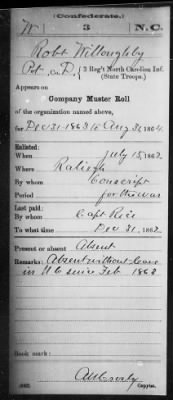 (Confederate.)
W 3 N.C.
Robt Willoughby
Pvt, Co. D, { 3 Reg't North Carolina Inf. (State Troops.)
Appears on
Company Muster Roll
of the organization named above,
for Dec 31-1863 to Aug 31, 1864.
Enlisted:
When July 15, 1862.
Where Raliegh
By whom Conscript
Period for the war
Last paid:
By whom Capt Rice
To what time Dec 31, 1862.
Present or absent Absent
Remarks: Absent without leave
in N C since Feb 1863
Book mark:
(642) Copyist.